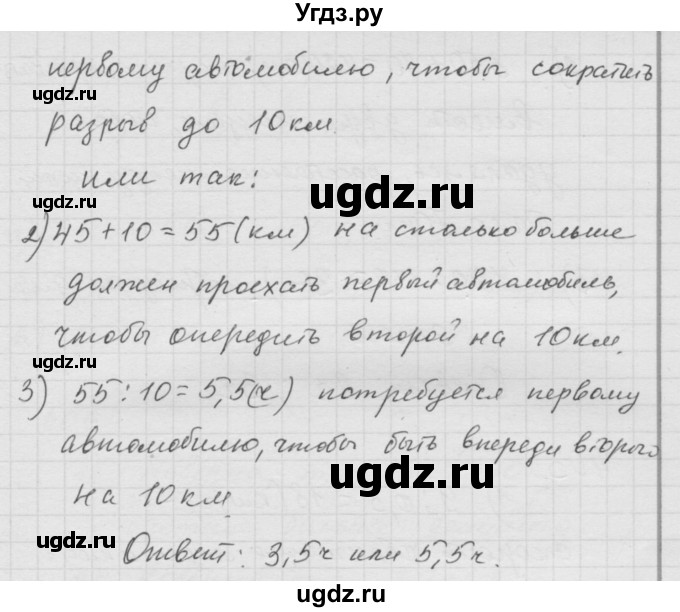 Угдз.ру
первому автомобилю, чтобы сократить
разрыв до 10 км.
или так:
2) 45 + 10 = 55 (км) на столько больше
должен проехать первый автомобиль,
чтобы опередить второй на 10 км.
3) 55 : 10 = 5,5 (ч) потребуется первому
автомобилю, чтобы быть впереди второго
на 10 км
Ответ: 3,5 ч или 5,5 ч.
ugdz.ru
ugdz.ru
ugdz.ru
ugdz.ru
ugdz.ru
ugdz.ru
ugdz.ru
ugdz.ru